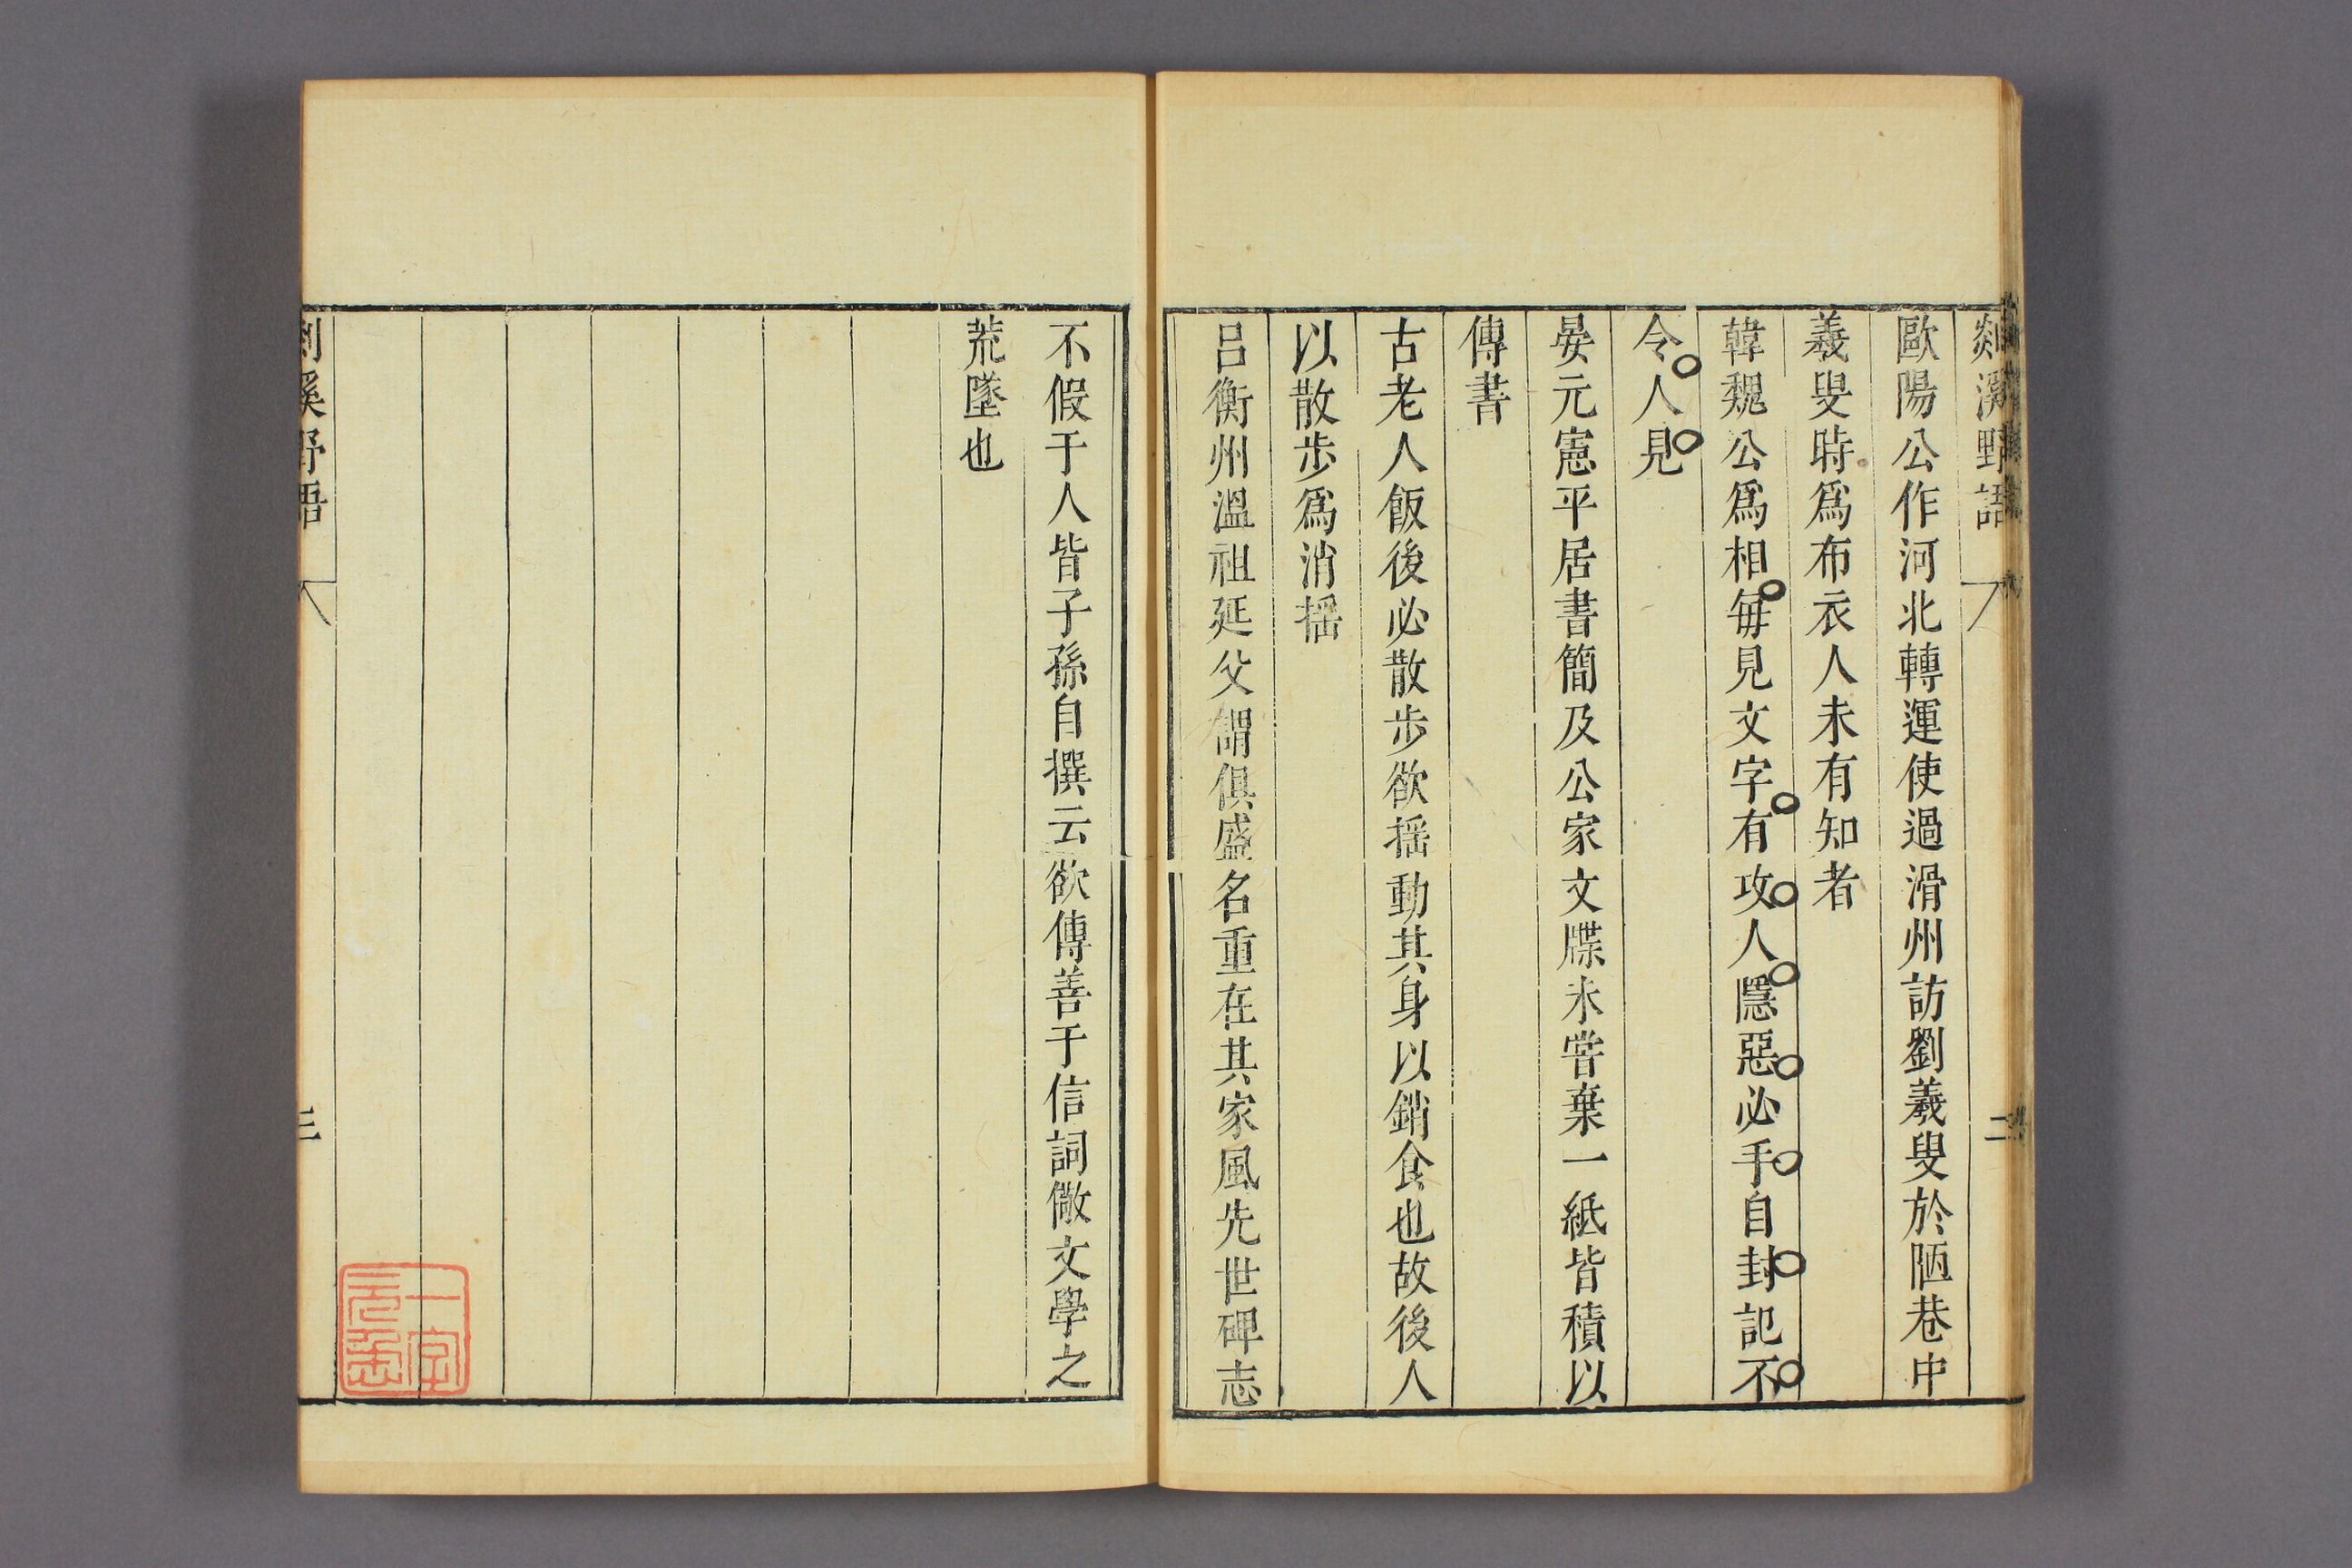 剡溪野語
二
歐陽公作河北轉運使過滑州訪劉羲叟於陋巷中
羲叟時爲布衣人未有知者
韓魏公爲相每見文字有攻人隱惡必手自封記不
令人見
晏元憲平居書簡及公家文牒未嘗棄一紙皆積以
傳書
古老人飯後必散步欲揺動其身以銷食也故後人
以散步爲消揺
呂衡州溫祖延父謂俱盛名重在其家風先世碑志
不假于人皆子孫自撰云欲傳善于信詞儆文學之
荒墜也
剡溪野語
三